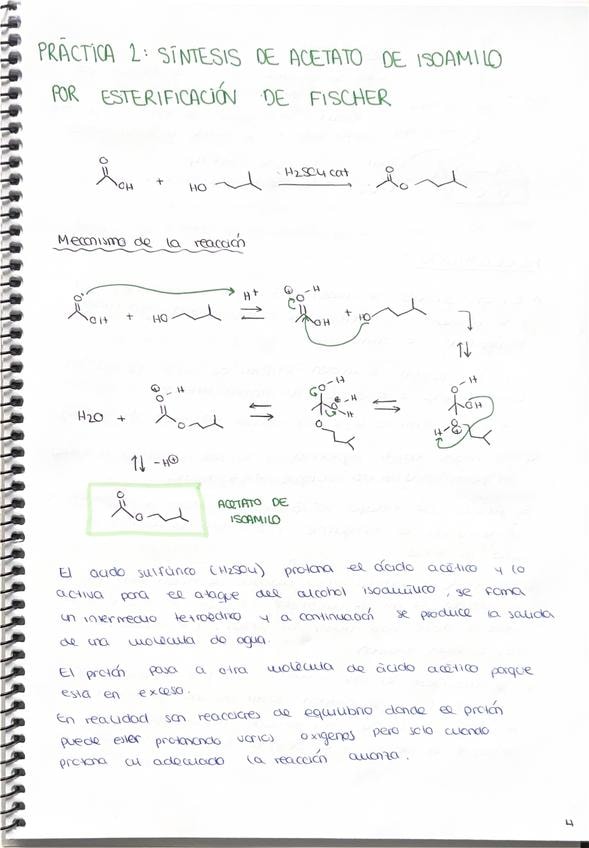 PRÁCTICA 2: SÍNTESIS DE ACETATO DE ISOAMILO
POR ESTERIFICACIÓN DE FISCHER
O OH + HO H2SO4 cat O O
Mecanismo de la reacción
O OH + HO H+ ⊕ O-H OH + HO
H2O + ⊕ O-H O O-H ⊕ O-H H O O-H OH H-O ⊕
-H⊕
O O ACETATO DE
ISOAMILO
El ácido sulfúrico (H2SO4) protona el ácido acético y lo
activa para el ataque del alcohol isoamílico, se forma
un intermedio tetraédrico y a continuación se produce la salida
de una molécula de agua.
El protón pasa a otra molécula de ácido acético porque
está en exceso.
En realidad son reacciones de equilibrio donde el protón
puede estar protonando varios oxígenos pero solo cuando
protona al adecuado la reacción avanza.
4